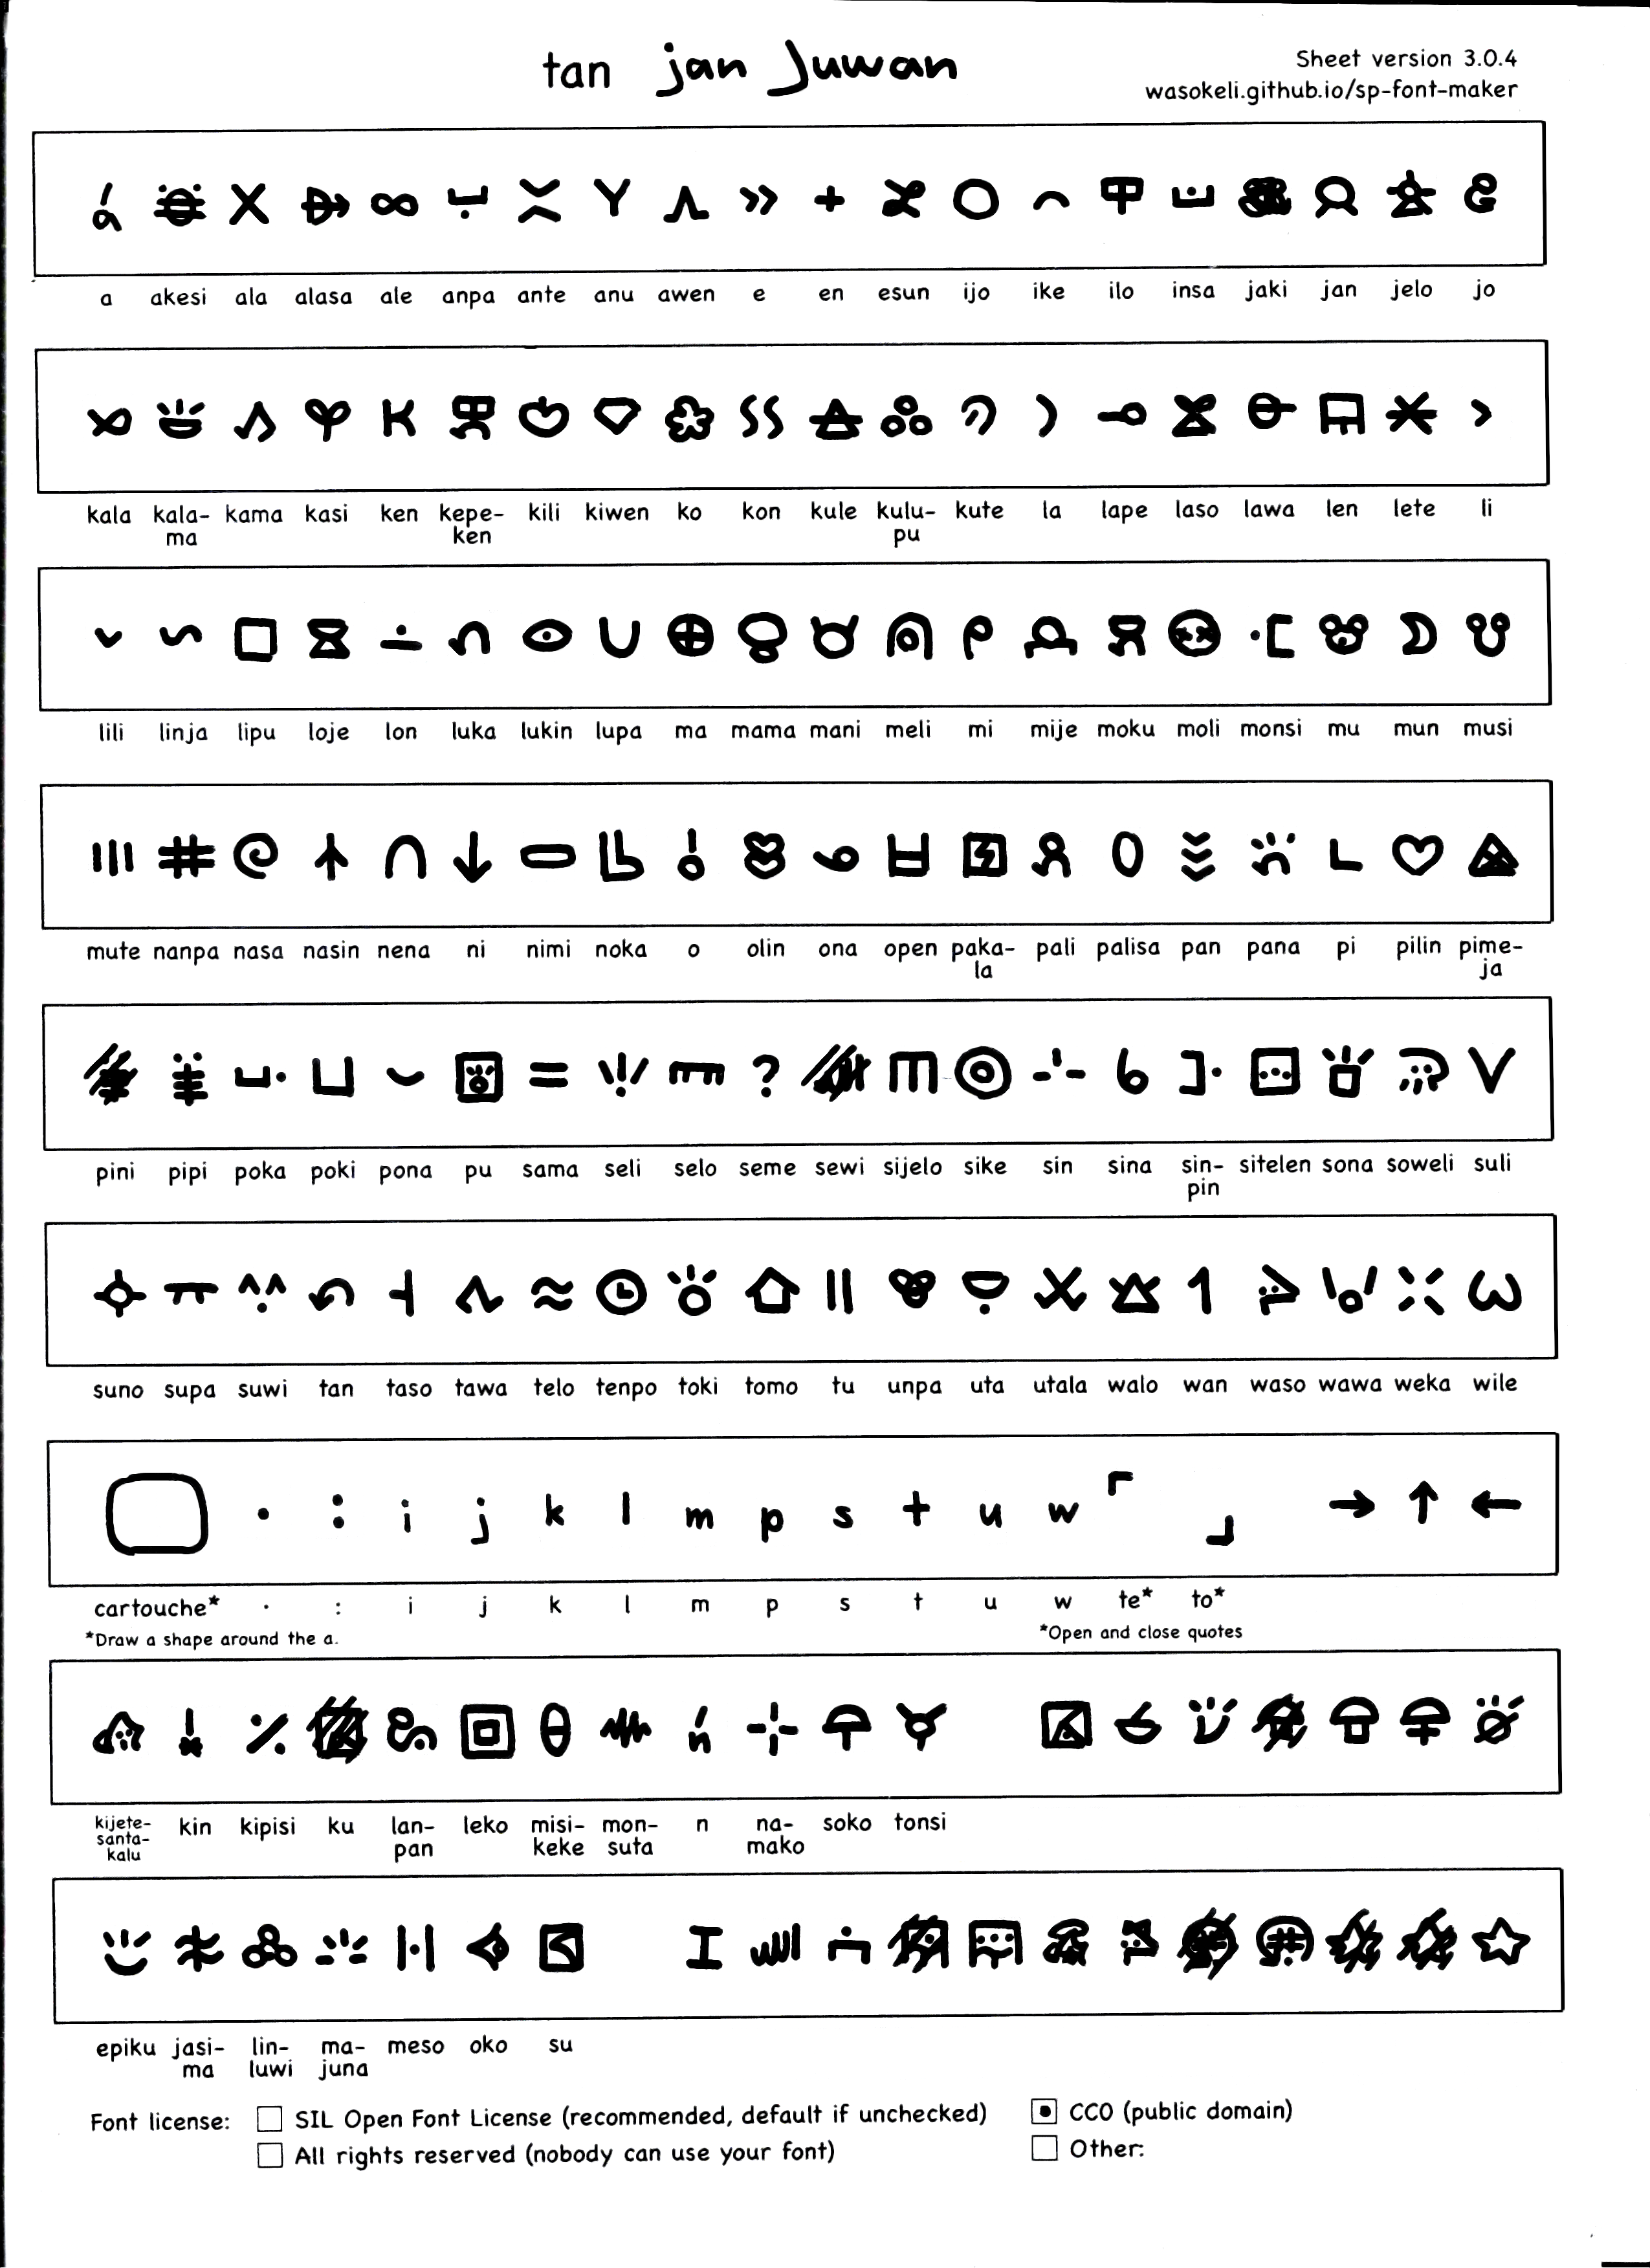 tan jan Juwan
Sheet version 3.0.4
wasokeli.github.io/sp-font-maker
a akesi ala alasa ale anpa ante anu awen e en esun ijo ike ilo insa jaki jan jelo jo
kala kala- kama kasi ken kepe- kili kiwen ko kon kule kulu- kute la lape laso lawa len lete li
ma ken pu
lili linja lipu loje lon luka lukin lupa ma mama mani meli mi mije moku moli monsi mu mun musi
mute nanpa nasa nasin nena ni nimi noka o olin ona open paka- pali palisa pan pana pi pilin pime-
la ja
?
pini pipi poka poki pona pu sama seli selo seme sewi sijelo sike sin sina sin- sitelen sona soweli suli
pin
suno supa suwi tan taso tawa telo tenpo toki tomo tu unpa uta utala walo wan waso wawa weka wile
· : i j k l m p s t u w ⌜ ⌟ → ↑ ←
cartouche* · : i j k l m p s t u w te* to*
*Draw a shape around the a. *Open and close quotes
kijete- kin kipisi ku lan- leko misi- mon- n na- soko tonsi
santa- pan keke suta mako
kalu
epiku jasi- lin- ma- meso oko su
ma luwi juna
Font license: SIL Open Font License (recommended, default if unchecked) CC0 (public domain)
All rights reserved (nobody can use your font) Other: